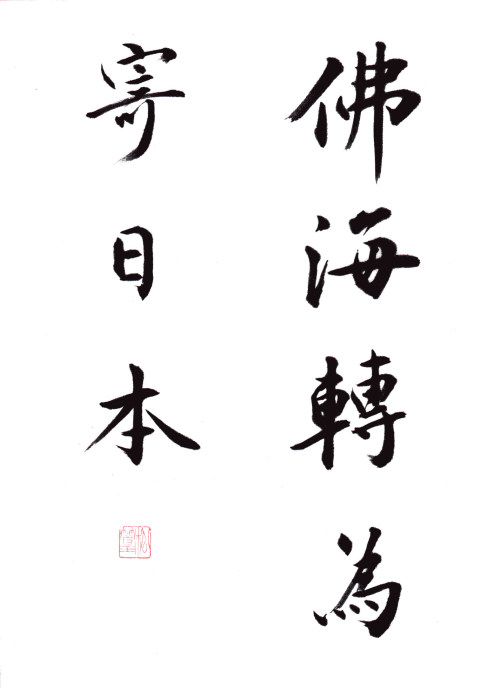 佛海轉為
寄日本